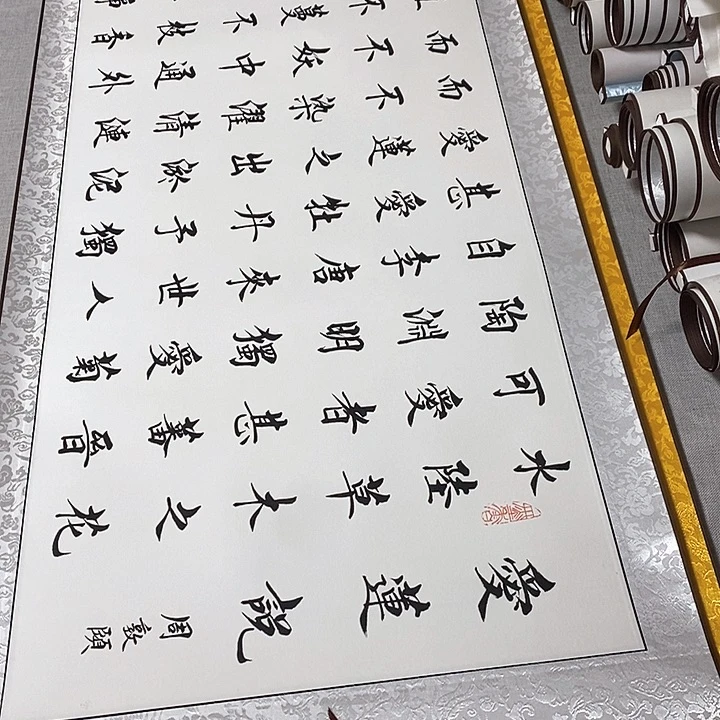 愛蓮說 周敦頤
水陸草木之花
可愛者甚蕃晉
陶淵明獨愛菊
自李唐來世人
甚愛牡丹予獨
愛蓮之出淤泥
而不染濯清漣
而不妖中通外
不蔓不枝香